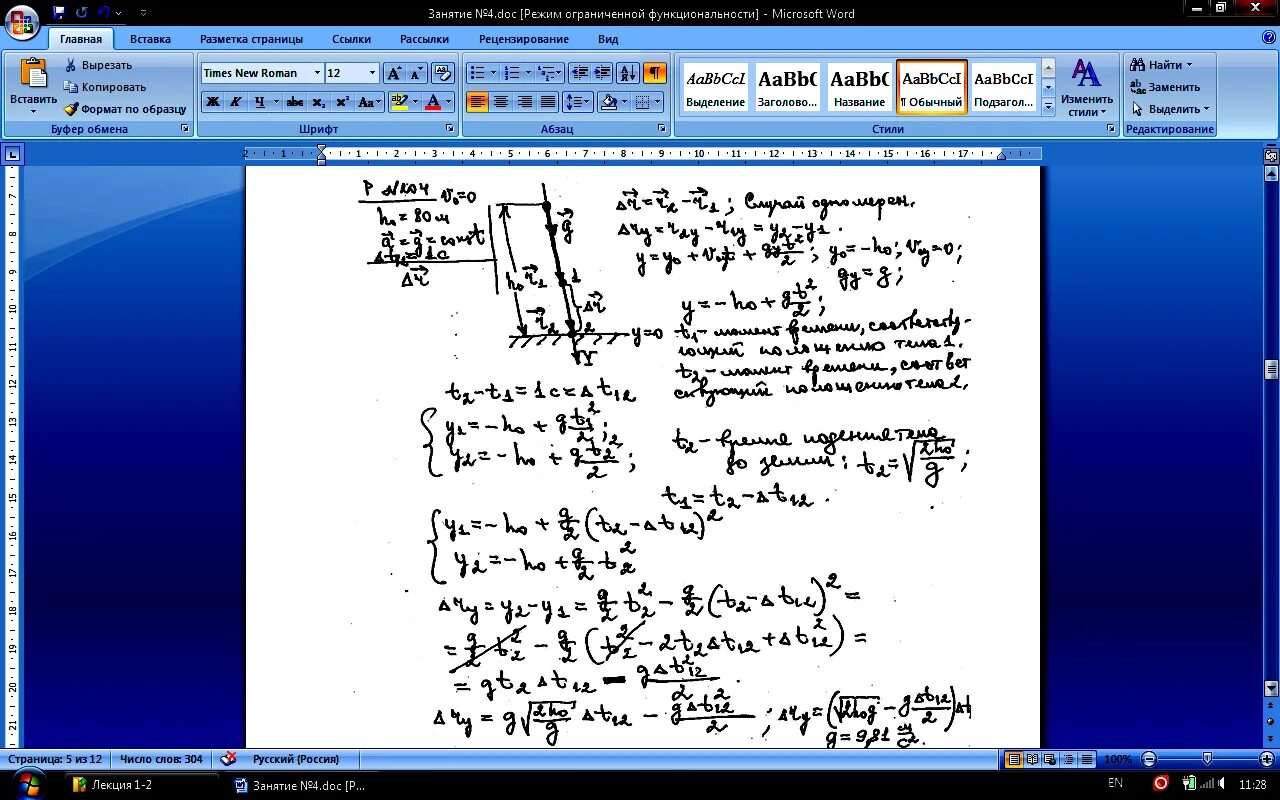 Занятие №4.doc [Режим ограниченной функциональности] - Microsoft Word
Главная Вставка Разметка страницы Ссылки Рассылки Рецензирование Вид
Вставить
Вырезать
Копировать
Формат по образцу
Буфер обмена
Times New Roman 12
Ж К Ч abc x₂ x² Aa
Шрифт
Абзац
AaBbCcI AaBbC AaBbC AaBbCcI AaBbCcI
Выделение Заголово... Название ¶ Обычный Подзагол...
Изменить стили
Стили
Найти
Заменить
Выделить
Редактирование
v₀=0
h₀ = 80 м
a⃗ = g⃗ = const
Δt₁₂ = 1c
Δr⃗
g⃗
1
h₀ r⃗₁
Δr⃗
r⃗₂ 2
y=0
Y
Δr⃗ = r⃗₂ − r⃗₁ ; Случай одномерн.
Δr_y = r₂y − r₁y = y₂ − y₁.
y = y₀ + v₀y t + g_y t²/2 ; y₀ = −h₀; v₀y = 0;
g_y = g;
y = −h₀ + gt²/2 ;
t₁ − момент времени, соответству-
ющий положению тела 1.
t₂ − момент времени, соответ
ствующий положению тела 2.
t₂ − t₁ = 1c = Δt₁₂
y₁ = −h₀ + gt₁²/2 ;
y₂ = −h₀ + gt₂²/2 ;
t₂ − время падения тела
до земли : t₂ = √(2h₀/g) ;
t₁ = t₂ − Δt₁₂ .
y₁ = −h₀ + g/2 (t₂ − Δt₁₂)²
y₂ = −h₀ + g/2 t₂²
Δr_y = y₂ − y₁ = g/2 t₂² − g/2 (t₂ − Δt₁₂)² =
= g/2 t₂² − g/2 (t₂² − 2t₂Δt₁₂ + Δt₁₂²) =
= gt₂Δt₁₂ − gΔt₁₂²/2 .
Δr_y = g√(2h₀/g) Δt₁₂ − gΔt₁₂²/2 ; Δr_y = (√(2h₀g) − gΔt₁₂/2)Δt
g = 9,81 м/с².
Страница: 5 из 12 Число слов: 304 Русский (Россия) 100%
Лекция 1-2 Занятие №4.doc [Р... EN 11:28